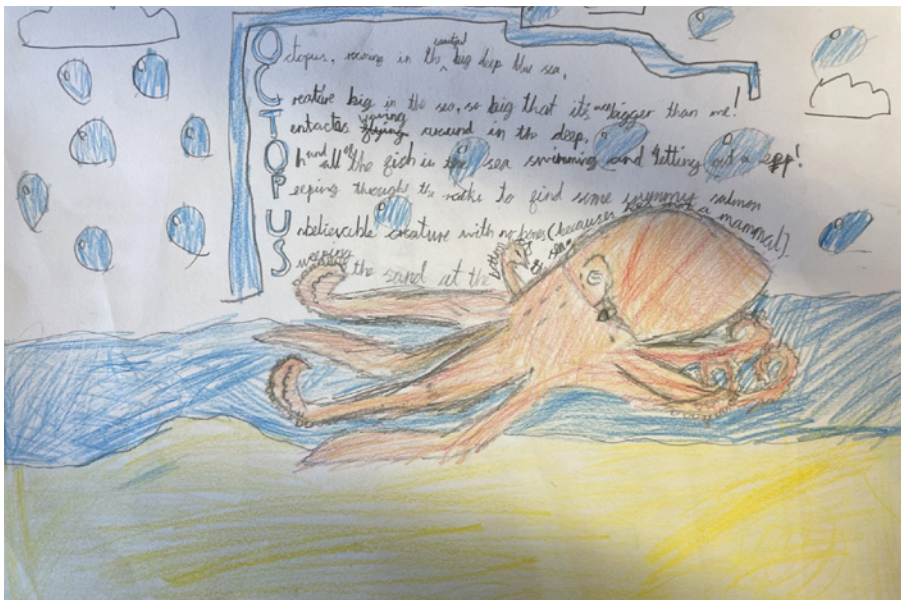 Octopus, moving in the beautiful big deep blue sea,
Creature big in the sea, so big that it's even bigger than me!
Tentacles flying around in the deep,
Oh and all of the fish in the sea swimming and letting out a
Peeping through the rocks to find some yummy salmon
Unbelievable creature with no bones (because he's not a mammal).
Sweeping the sand at the bottom of the sea.